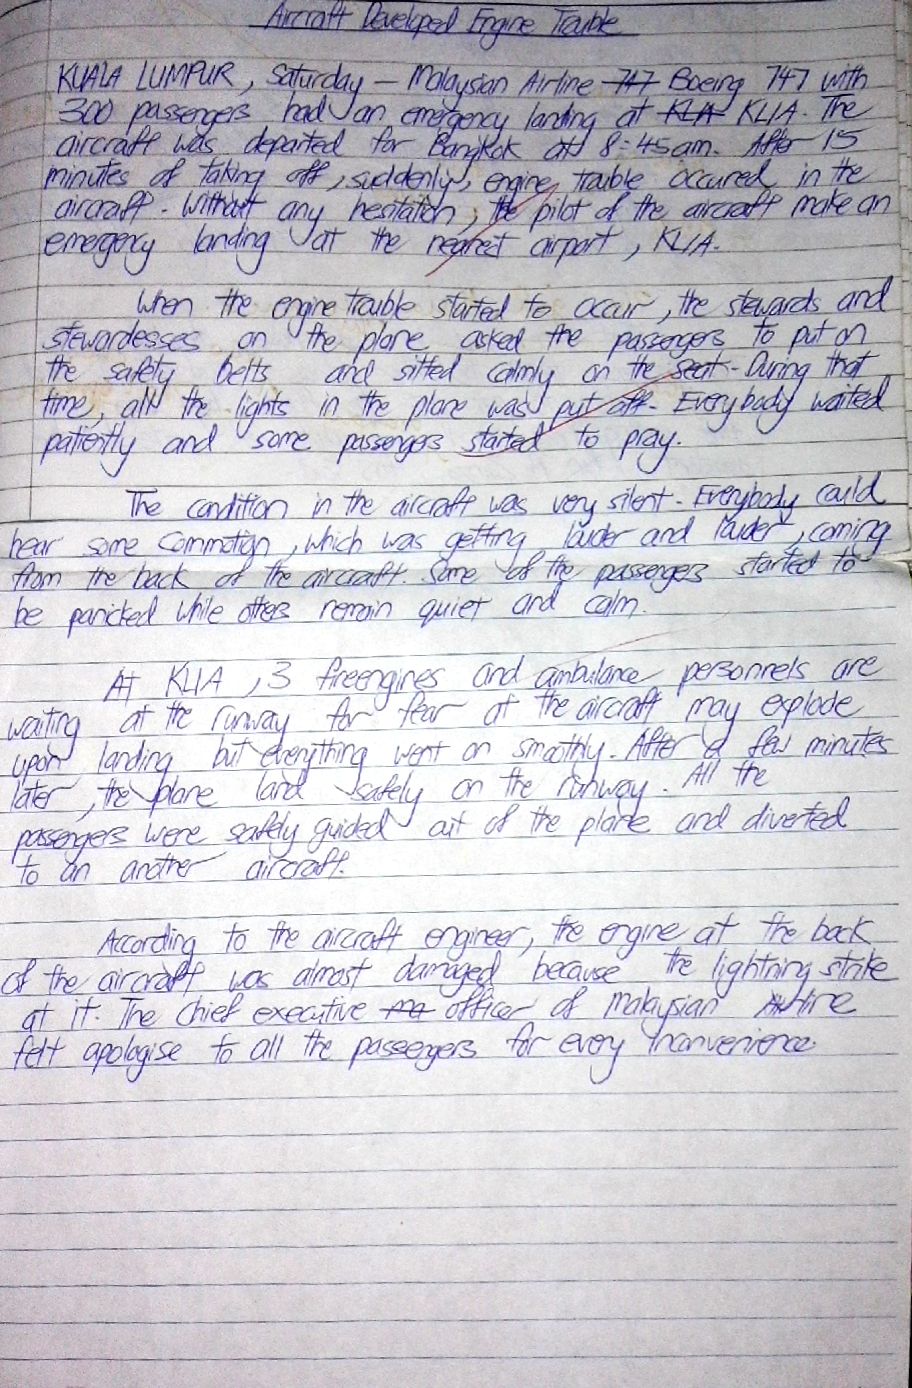 Aircraft Developed Engine Trouble
KUALA LUMPUR, Saturday – Malaysian Airline 747 Boeing 747 with
300 passengers had an emergency landing at KLA KLIA. The
aircraft was departed for Bangkok at 8:45am. After 15
minutes of taking off, suddenly, engine trouble occured in the
aircraft. Without any hesitation, the pilot of the aircraft make an
emergency landing at the nearest airport, KLIA.
When the engine trouble started to occur, the stewards and
stewardesses on the plane asked the passengers to put on
the safety belts and sitted calmly on the seat. During that
time, all the lights in the plane was put off. Everybody waited
patiently and some passengers started to pray.
The condition in the aircraft was very silent. Everybody could
hear some commotion, which was getting louder and louder, coming
from the back of the aircraft. Some of the passengers started to
be panicked while others remain quiet and calm.
At KLIA, 3 fireengines and ambulance personnels are
waiting at the runway for fear at the aircraft may explode
upon landing but everything went on smoothly. After a few minutes
later, the plane land safely on the runway. All the
passengers were safely guided out of the plane and diverted
to an another aircraft.
According to the aircraft engineer, the engine at the back
of the aircraft was almost damaged because the lightning strike
at it. The Chief executive officer of Malaysian Airline
felt apologise to all the passengers for every inconvenience.